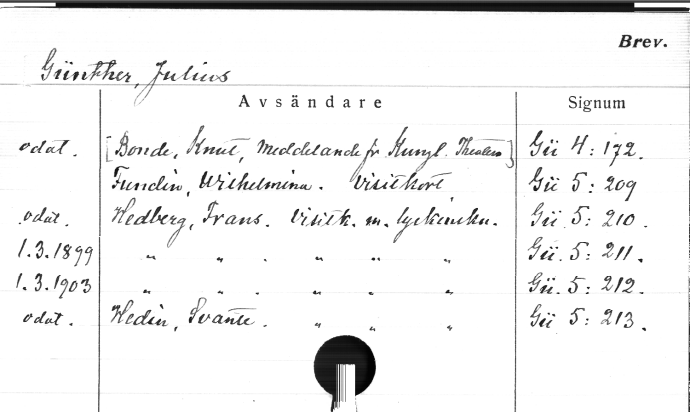 Brev.
Günther, Julius
Avsändare Signum
odat. [Bonde, Knut, Meddelande fr Kungl. Theatern] Gü 4: 172.
Fundin, Wilhelmina. Visitkort Gü 5: 209
odat. Hedberg, Frans. Visitk. m. lyckönskn. Gü. 5: 210.
1.3.1899 " " . " " " Gü. 5: 211.
1.3.1903 " " . " " " Gü. 5: 212.
odat. Hedin, Svante. " " " Gü 5: 213.